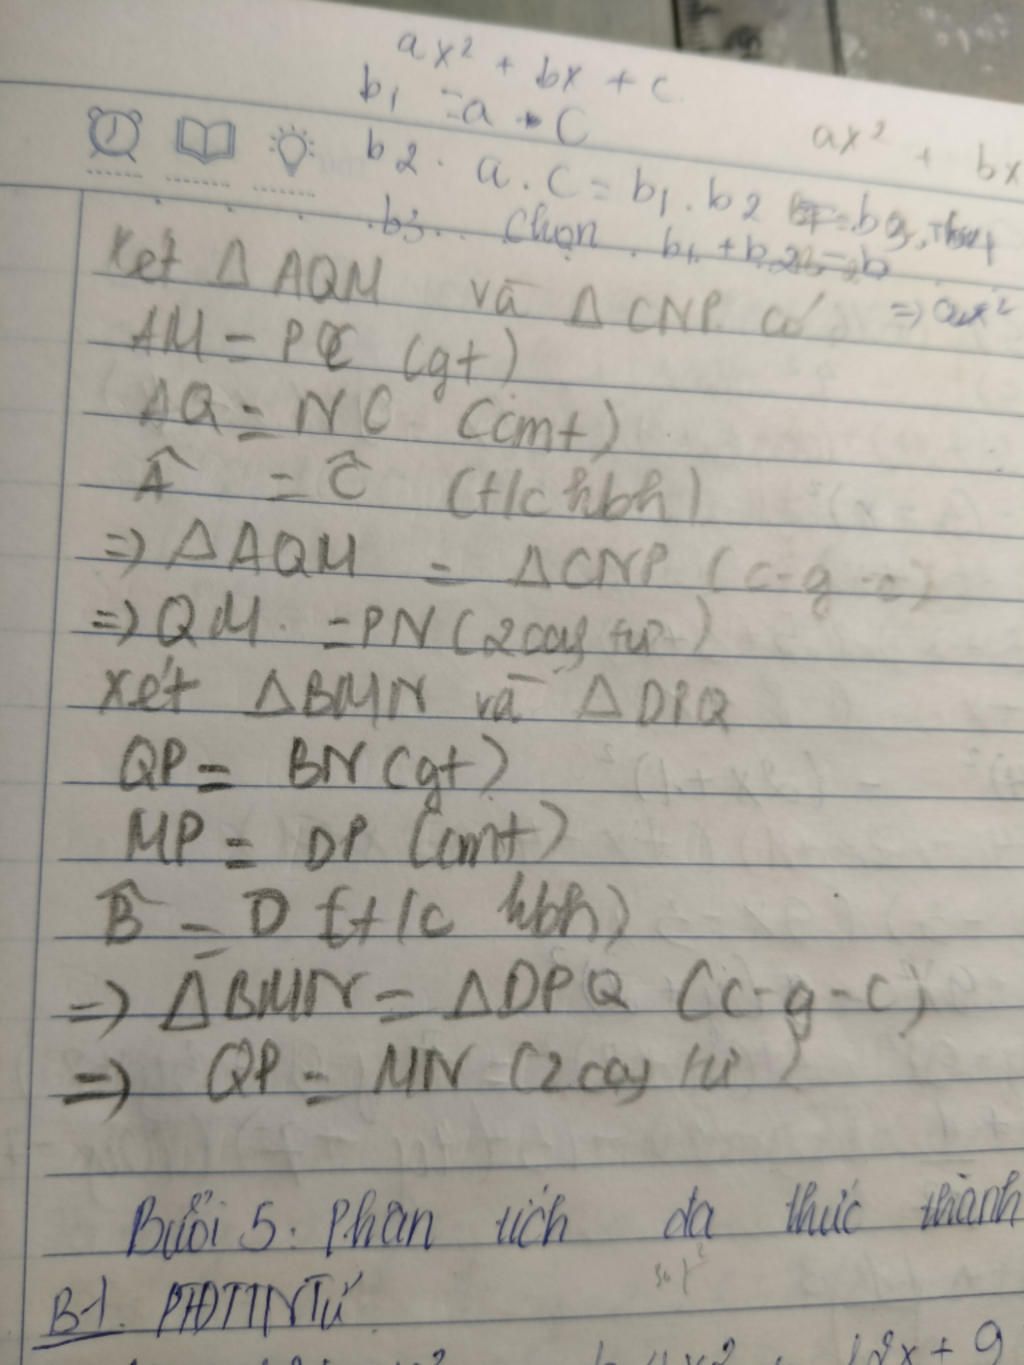 ax² + bx + c
b1 = a . C
ax² + bx
b2 . a . C = b1 . b2
b3 . Chọn . b1 + b2 = b
=> ax²
Xét Δ AQM và Δ CNP có
AM = PC (gt)
AQ = NC (cmt)
Â = Ĉ (t/c hbh)
=> Δ AQM = Δ CNP (c-g-c)
=> QM = PN (2 cạg tư)
Xét Δ BMN và Δ DPQ
QP = BN (gt)
MP = DP (cmt)
B̂ = D (t/c hbh)
=> Δ BMN = Δ DPQ (c-g-c)
=> QP = MN (2 cạg tư)
Buổi 5: Phân tích đa thức thành
B-1. PTĐTTNTử